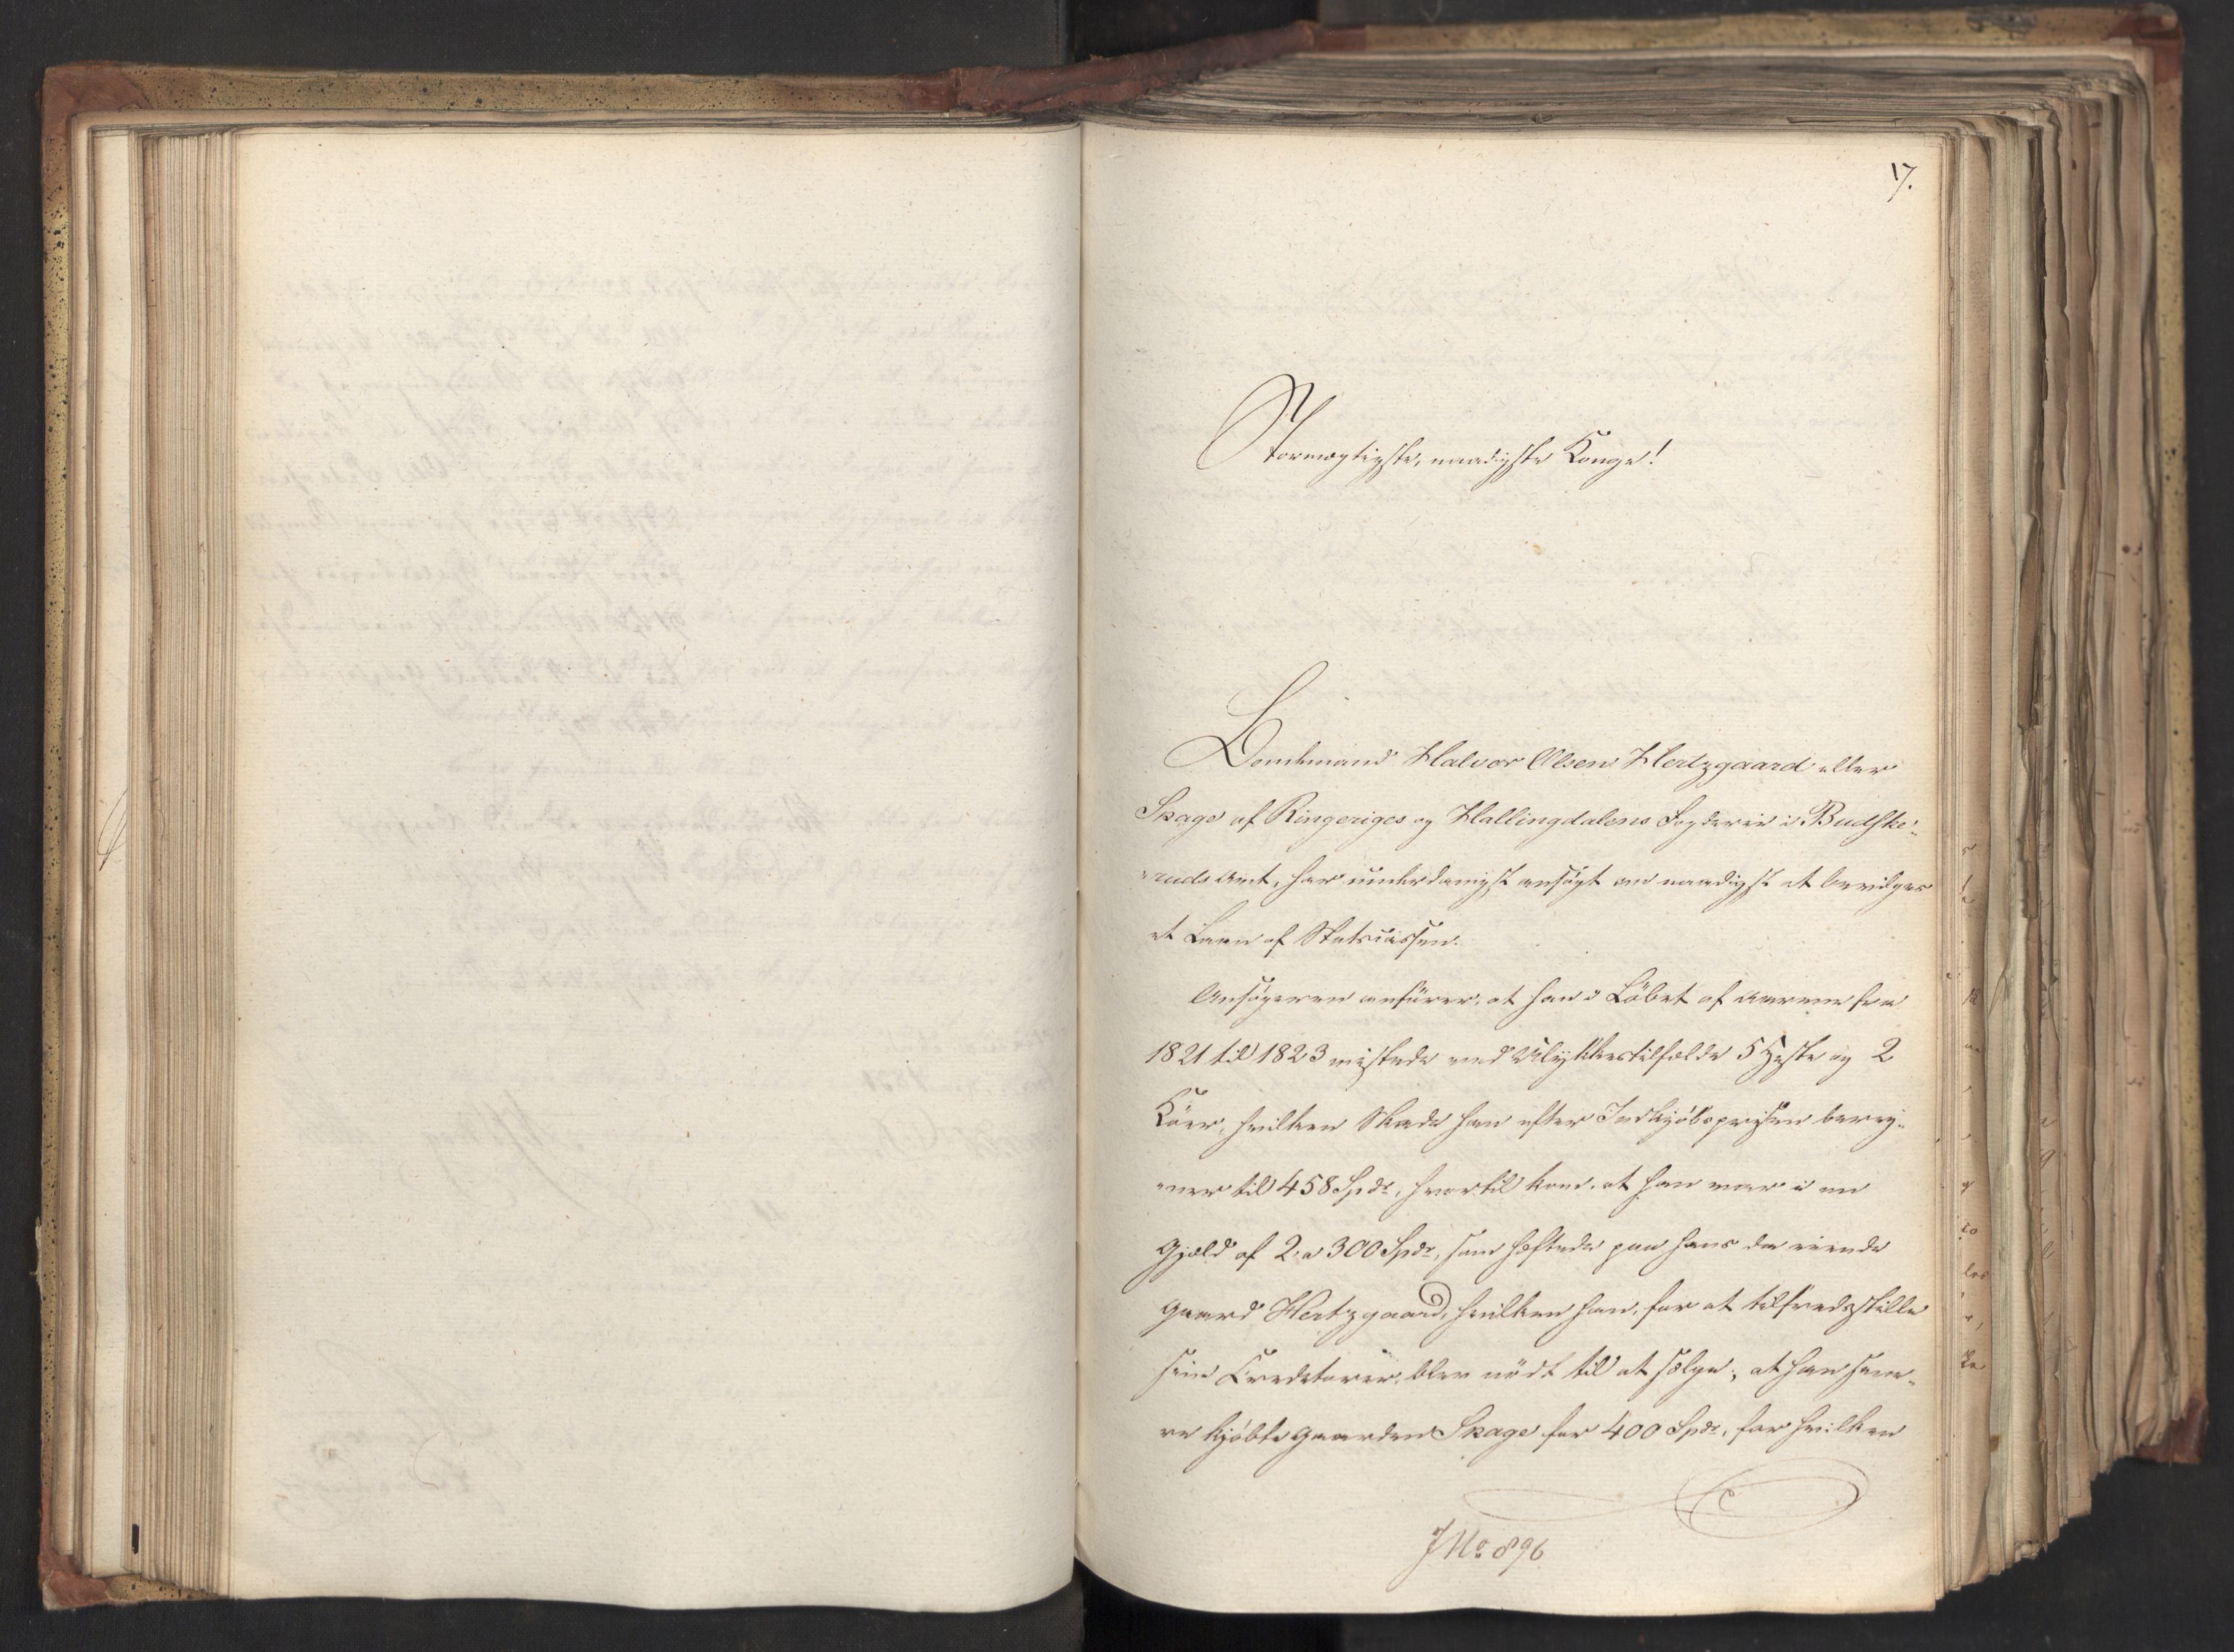 17.
Stormægtigste, naadigste Konge!
Bondemand Halvor Olsen Hertzgaard eller
Skage af Ringeriges og Hallingdalens Fogderie i Budske-
-ruds Amt, har underdanigst ansøgt om naadigst at bevilges
et Laan af Statscassen.
Ansøgeren anfører, at han i Löbet af Aarene fra
1821 til 1823 mistede ved Ulykkestilfælde 5 Heste og 2
Köer, hvilken Skade han efter Indkjöbsprisen bereg-
-ner til 458 Spdr, hvortil kom, at han var i en
Gjæld af 2 a 300 Spdr, som heftede paa hans da eiende
Gaard Hertzgaard, hvilken han, for at tilfredsstille
sine Creditorer, blev nödt til at sælge; at han sene-
re kjöbte Gaarden Skage for 400 Spdr, for hvilken
J No 896